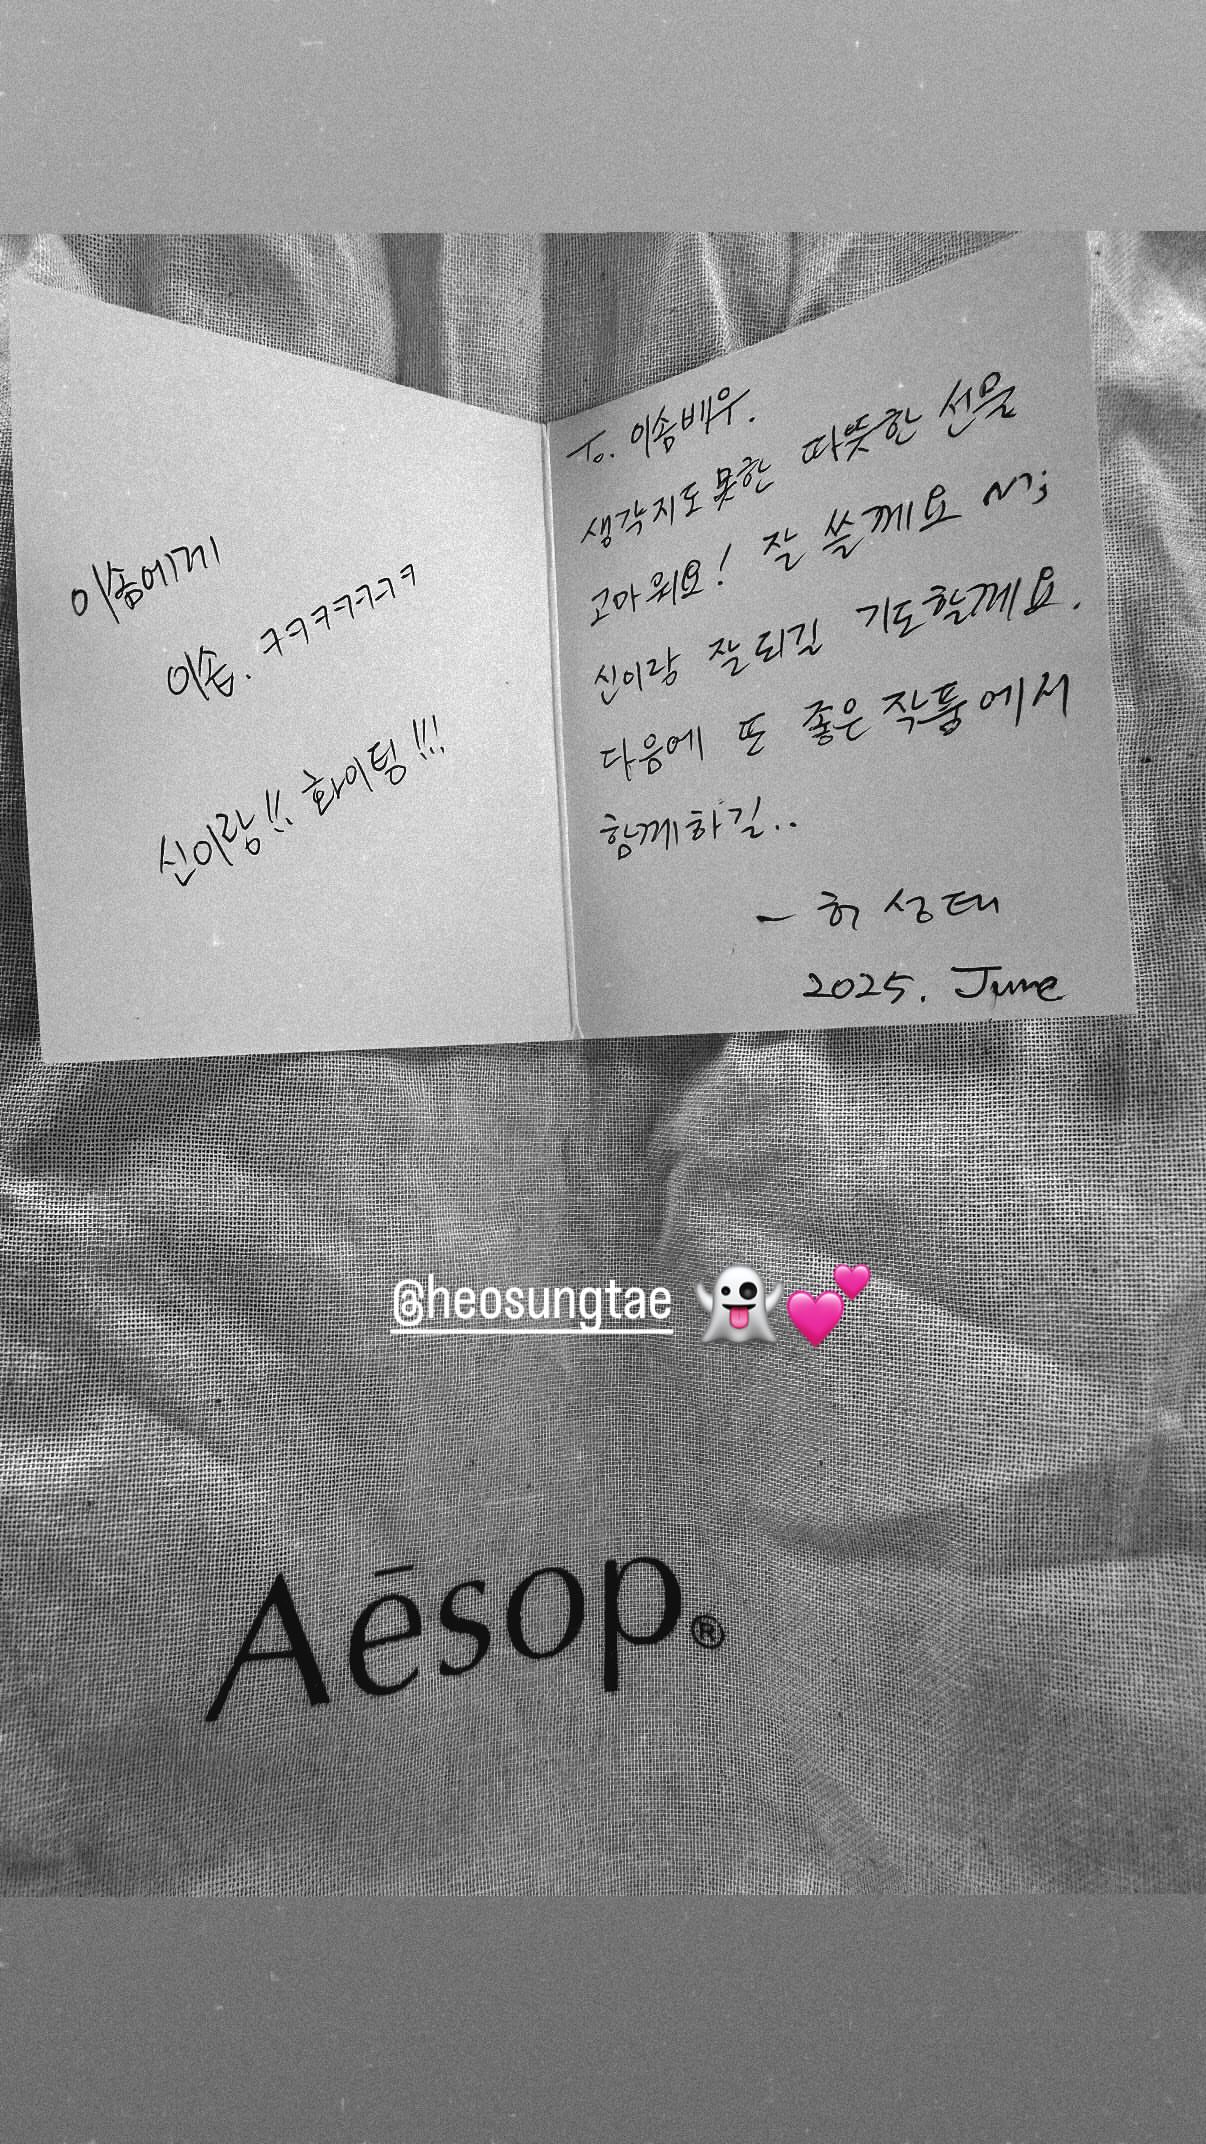 이솜에게
이솜. ㅋㅋㅋㅋㅋㅋ
신이랑!!. 화이팅!!!
To. 이솜배우.
생각지도 못한 따뜻한 선물
고마워요! 잘 쓸께요 ^^;
신이랑 잘되길 기도할께요.
다음에 또 좋은 작품에서
함께하길..
- 허성태
2025. June
@heosungtae
Aēsop®